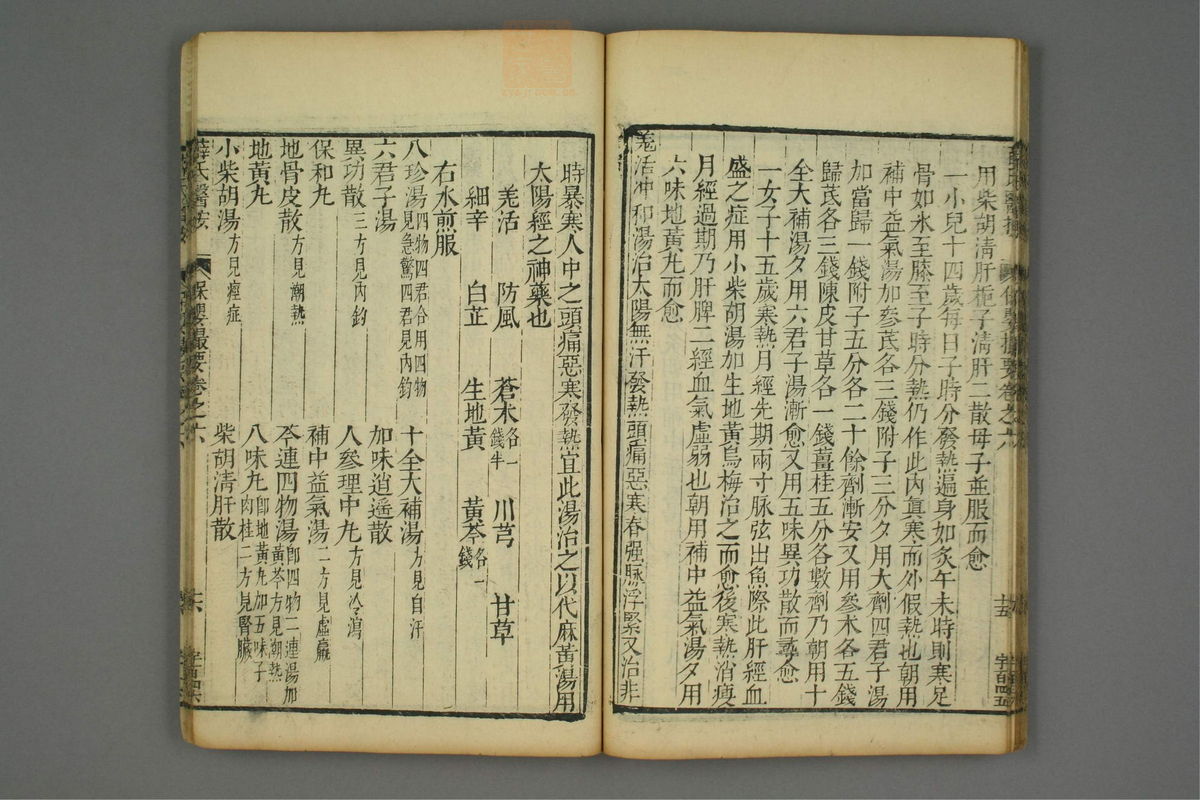 用柴胡清肝梔子清肝二散母子並服而愈
一小兒十四歲每日子時分發熱遍身如炙午未時則寒足
骨如氷至膝至子時分熱仍作此內眞寒而外假熱也朝用
補中益氣湯加參芪各三錢附子三分夕用大劑四君子湯
加當歸一錢附子五分各二十餘劑漸安又用參术各五錢
歸芪各三錢陳皮甘草各一錢薑桂五分各數劑乃朝用十
全大補湯夕用六君子湯漸愈又用五味異功散而尋愈
一女子十五歲寒熱月經先期兩寸脉弦出魚際此肝經血
盛之症用小柴胡湯加生地黃烏梅治之而愈後寒熱消瘦
月經過期乃肝脾二經血氣虛弱也朝用補中益氣湯夕用
六味地黃丸而愈
羗活冲和湯治太陽無汗發熱頭痛惡寒脊强脉浮緊又治非
時暴寒人中之頭痛惡寒發熱宜此湯治之以代麻黃湯用
太陽經之神藥也
羌活 防風 蒼术各一錢半 川芎 甘草
細辛 白芷 生地黃 黃芩各一錢
右水煎服
八珍湯四物四君合用四物見急驚四君見內釣 十全大補湯方見自汗
六君子湯 加味逍遥散
異功散三方見內釣 人參理中丸方見冷瀉
保和丸 補中益氣湯二方見虛羸
地骨皮散方見潮熱 芩連四物湯卽四物二連湯加黃芩方見潮熱
地黃丸 八味丸卽地黃丸加五味子肉桂二方見腎臟
小柴胡湯方見痙症 柴胡清肝散
薛氏醫按 保嬰撮要卷之六 十六